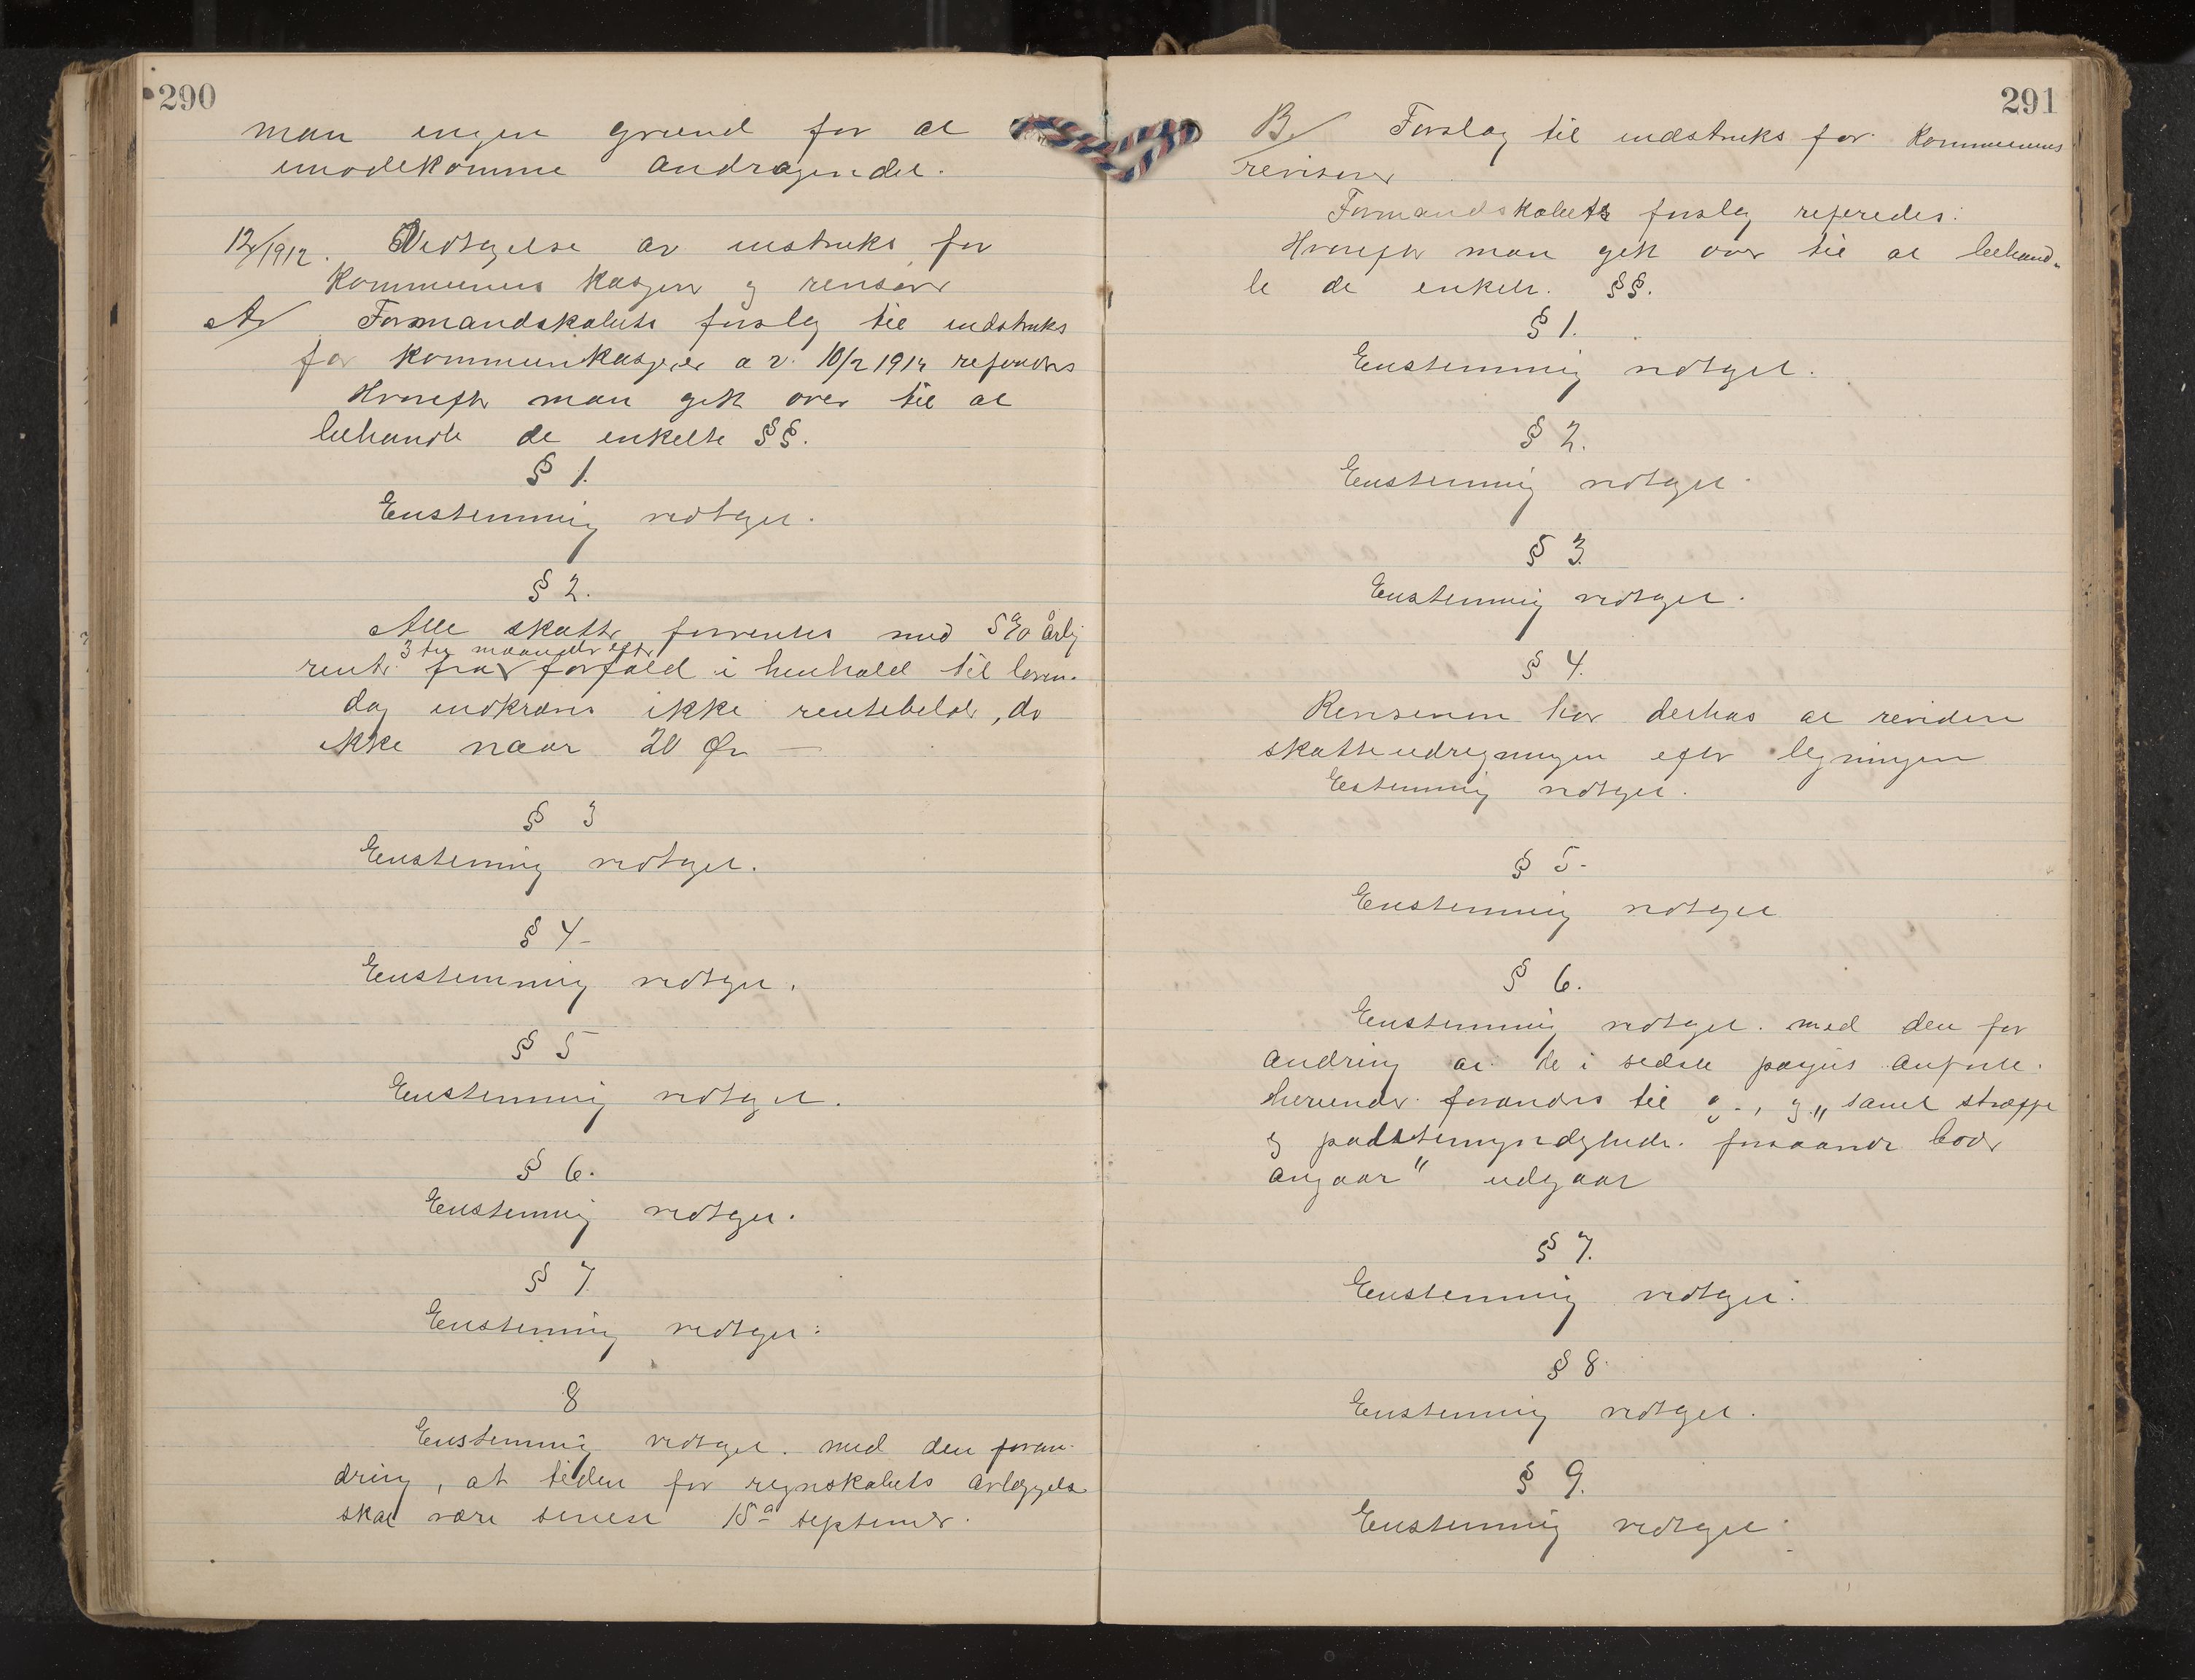 290
man ingen grund for at
imødekomme andragendet.
12/1912. Vedtagelse av instruks for
Kommunens kasserer og revisor
A/ Formandskabets forslag til indstruks
for kommunekasserer av 10/2 1912 refereres
Hvorefter man gik over til at
behandle de enkelte §§.
§ 1.
Enstemmig vedtaget.
§ 2.
Alle skatter forrentes med 5% årlig
3 tre maaneder efter
rente fra forfald i henhold til loven.
dog indkræves ikke rentebeløb, da
ikke naar 20 Øre —
§ 3
Enstemmig vedtaget.
§ 4-
Enstemmig vedtaget.
§ 5
Enstemmig vedtaget.
§ 6.
Enstemmig vedtaget.
§ 7
Enstemmig vedtaget.
8
Enstemmig vedtaget. med den foran-
dring, at tiden for regnskabets avlæggelse
skal være senest 15de september.
291
B/ Forslag til indstruks for Kommunens
revisor
Formandskabets forslag refereres.
Hvorefter man gik over til at behand-
le de enkelte §§.
§ 1.
Enstemmig vedtaget.
§ 2.
Enstemmig vedtaget.
§ 3.
Enstemmig vedtaget.
§ 4.
Revisoren har desuten at revidere
skatteudregningen efter ligningen
Estemmig vedtaget.
§ 5-
Enstemmig vedtaget
§ 6.
Enstemmig vedtaget. med den for
andring at de i sidste passus anførte
herunder forandres til og „samt straffe
og politimyndighede forsaavidt bøder
angaar" udgaar
§ 7.
Enstemmig vedtaget.
§ 8.
Enstemmig vedtaget.
§ 9.
Enstemmig vedtaget.